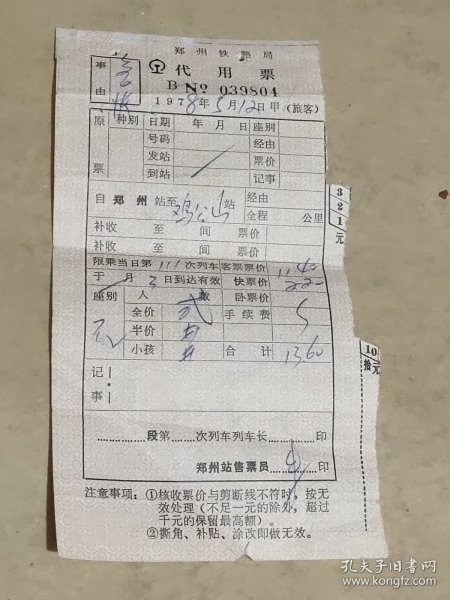 郑州铁路局
事由
代用票
B No 039804
1978年5月12日甲(旅客)
原票 种别 日期 年月日 座别
号码 经由
发站 票价
到站 记事
自郑州站至鸡公山站 经由
全程 公里
补收 至 间 票价
补收 至 间 票价
限乘当日第111次列车客票票价 11.40
于 月 3日到达有效 快票价 2.20
座别 人数 卧票价
全价 贰 手续费
半价
小孩 合计 13.60
记事
段第 次列车列车长 印
郑州站售票员 印
注意事项:①核收票价与剪断线不符时,按无
效处理(不足一元的除外,超过
千元的保留最高额)。
②撕角、补贴、涂改即做无效。
3 2 1 元
10 拾元
孔夫子旧书网
www.kongfz.com